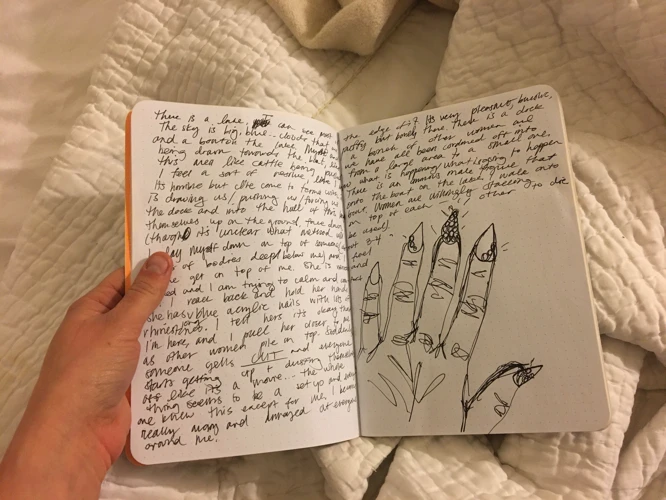 there is a lake. I can see the edge of it. Its very pleasant, bucolic,
The sky is big, blue.. clouds that puffy but barely there. There is a dock
and a boat on the lake. Myself and a bunch of other women are
being drawn towards the boat, like we have all been cordoned off into
this area like cattle being from a large area to a small one.
I feel a sort of passive, like I know what is happening, what is going to happen
Its horrible but Ive come to terms with There is an ominous male figure that
is drawing us/ pushing us/ forcing us onto the boat on the lake, I walk onto
the dock and into the hull of this boat. Women are willingly stacking
themselves up on the ground, face down on top of each other to die
(though it's unclear what method will be used)
I lay myself down on top of someone (about 3-4
of bodies deep below me) and I feel
one get on top of me. She is and
and I am trying to calm and
I reach back and hold her hand
she has long blue acrylic nails with lots of
rhinestones. I tell hers it's okay that
I'm here, and I pull her closer to me
as other women pile on top. Suddenly
someone yells CUT and everyone
starts getting up + dusting themselves
off like its a movie.. the whole
thing seems to be a set up and every
one knew this except for me. I become
really angry and at everyone
around me.